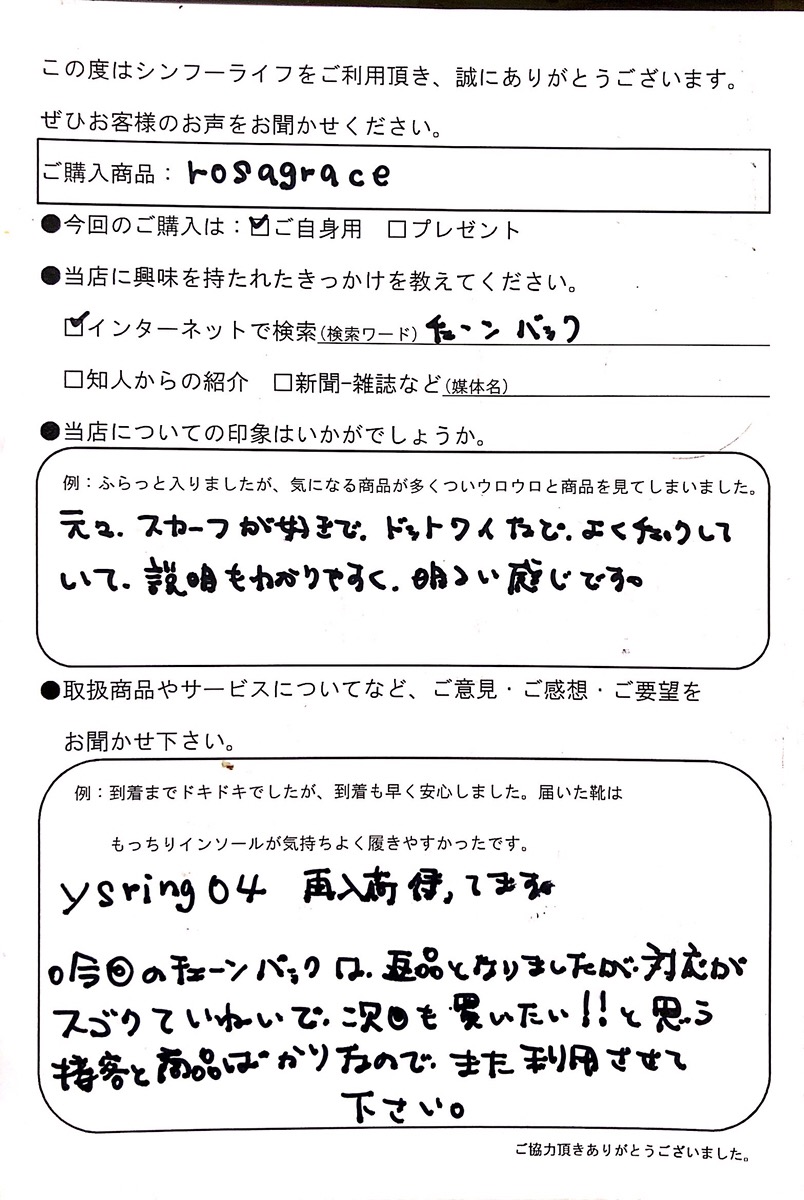 この度はシンフーライフをご利用頂き、誠にありがとうございます。
ぜひお客様のお声をお聞かせください。
ご購入商品：rosagrace
●今回のご購入は：☑ご自身用　□プレゼント
●当店に興味を持たれたきっかけを教えてください。
☑インターネットで検索(検索ワード) チェーンバック
□知人からの紹介　□新聞-雑誌など(媒体名)
●当店についての印象はいかがでしょうか。
例：ふらっと入りましたが、気になる商品が多くついウロウロと商品を見てしまいました。
元々、スカーフが好きで、ドットワイなど、よくチェックして
いて、説明もわかりやすく、明るい感じです。
●取扱商品やサービスについてなど、ご意見・ご感想・ご要望を
お聞かせ下さい。
例：到着までドキドキでしたが、到着も早く安心しました。届いた靴は
もっちりインソールが気持ちよく履きやすかったです。
ysring04　再入荷待ってます。
○今回のチェーンバックは、返品となりましたが、対応が
スゴクていねいで、次回も買いたい!!と思う
接客と商品ばかりなので、また利用させて
下さい。
ご協力頂きありがとうございました。